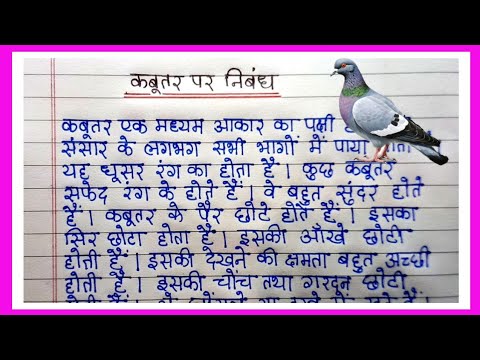 कबूतर पर निबंध
कबूतर एक मध्यम आकार का पक्षी
संसार के लगभग सभी भागों में पाया
यह धूसर रंग का होता है। कुछ कबूतर
सफेद रंग के होते हैं। वे बहुत सुंदर होते
हैं। कबूतर के पैर छोटे होते हैं। इसका
सिर छोटा होता हैं। इसकी आँखे छोटी
होती हैं। इसकी देखने की क्षमता बहुत अच्छी
होती है। इसकी चोंच तथा गरदन छोटी